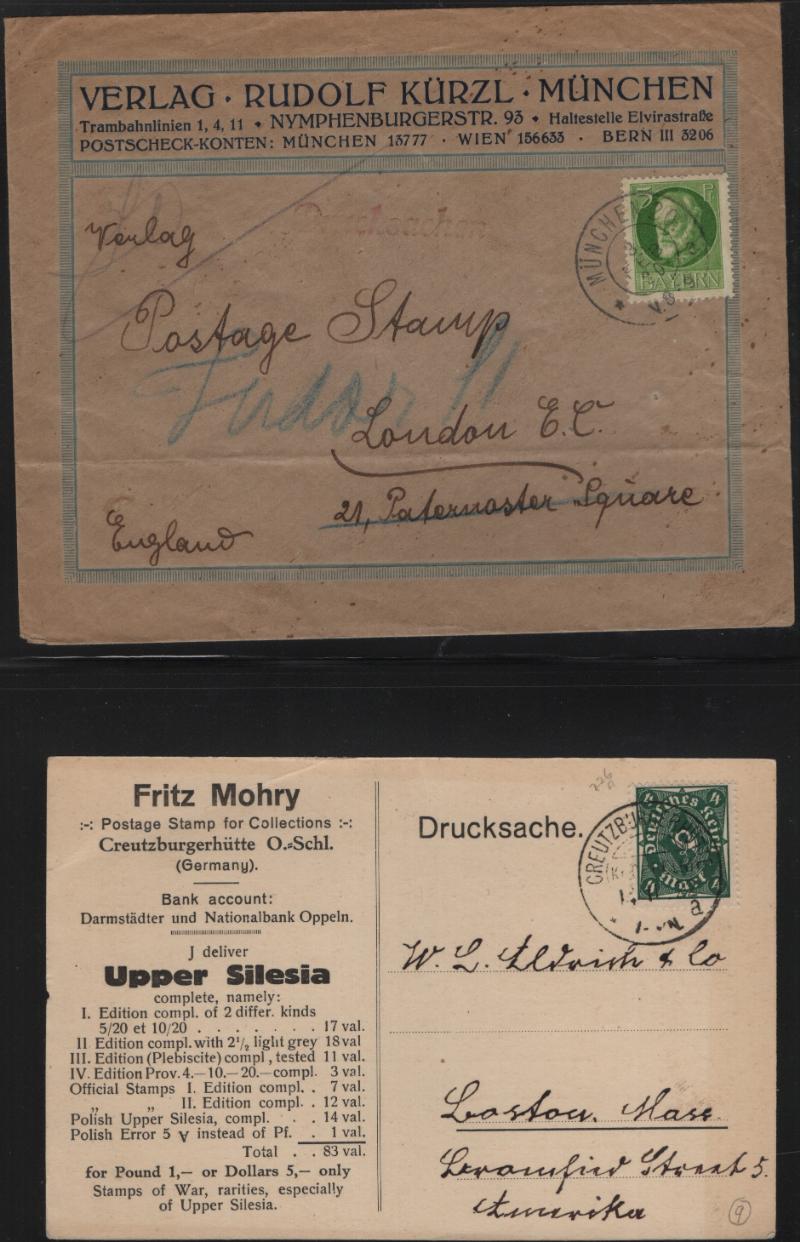 VERLAG · RUDOLF KÜRZL · MÜNCHEN
Trambahnlinien 1, 4, 11 • NYMPHENBURGERSTR. 93 • Haltestelle Elvirastraße
POSTSCHECK-KONTEN: MÜNCHEN 13777 · WIEN 156633 · BERN III 3206
Drucksachen
5 Pf
BAYERN
MÜNCHEN
Verlag
Postage Stamp
Tudor St
London E.C.
21, Paternoster Square
England
Fritz Mohry
:-: Postage Stamp for Collections :-:
Creutzburgerhütte O.=Schl.
(Germany).
Bank account:
Darmstädter und Nationalbank Oppeln.
J deliver
Upper Silesia
complete, namely:
I. Edition compl. of 2 differ. kinds
5/20 et 10/20 . . . . . . . 17 val.
II Edition compl. with 2½ light grey 18 val
III. Edition (Plebiscite) compl, tested 11 val.
IV. Edition Prov. 4.—10.—20.—compl. 3 val.
Official Stamps I. Edition compl. . 7 val.
„ „ II. Edition compl. . 12 val.
Polish Upper Silesia, compl. . . 14 val.
Polish Error 5 instead of Pf. . 1 val.
Total . . 83 val.
for Pound 1,— or Dollars 5,— only
Stamps of War, rarities, especially
of Upper Silesia.
Drucksache.
226
4 4
Deutsches Reich
Mark
4 4
CREUTZBU
a
W. L. Aldrich & Co
Boston. Mass.
Bromfied Street 5.
Amerika
9